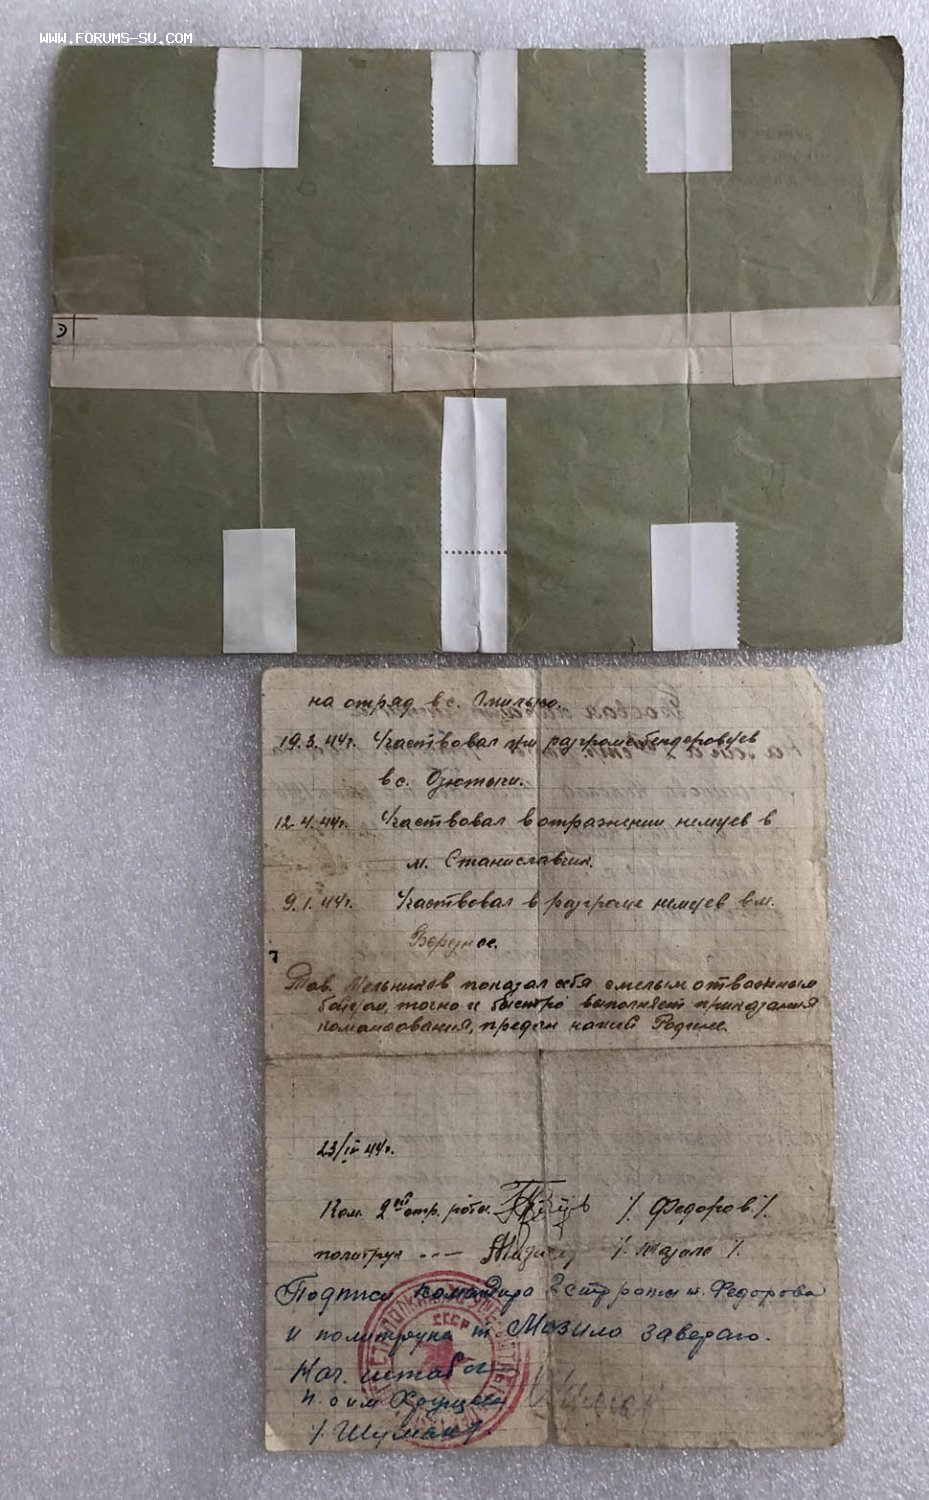 WWW.FORUMS-SU.COM
на отряд в с.
19.3.44г. Участвовал при разгроме бендеровцев
в с. Озютычи.
12.4.44г. Участвовал в отражении немцев в
м. Станиславчик.
9.1.44г. Участвовал в разгроме немцев в м.
Тов. Мельников показал себя смелым отважным
бойцом, точно и быстро выполняет приказания
командования, предан нашей Родине.
23/IV 44г.
Ком. 2ой стр. роты. /. Федоров /.
политрук -..- /. Мазило /.
Подписи командира 2 стр роты т. Федорова
и политрука т. Мазило заверяю.
Нач. штаба
п.о им Хрущева
/ Шуман /.
СССР